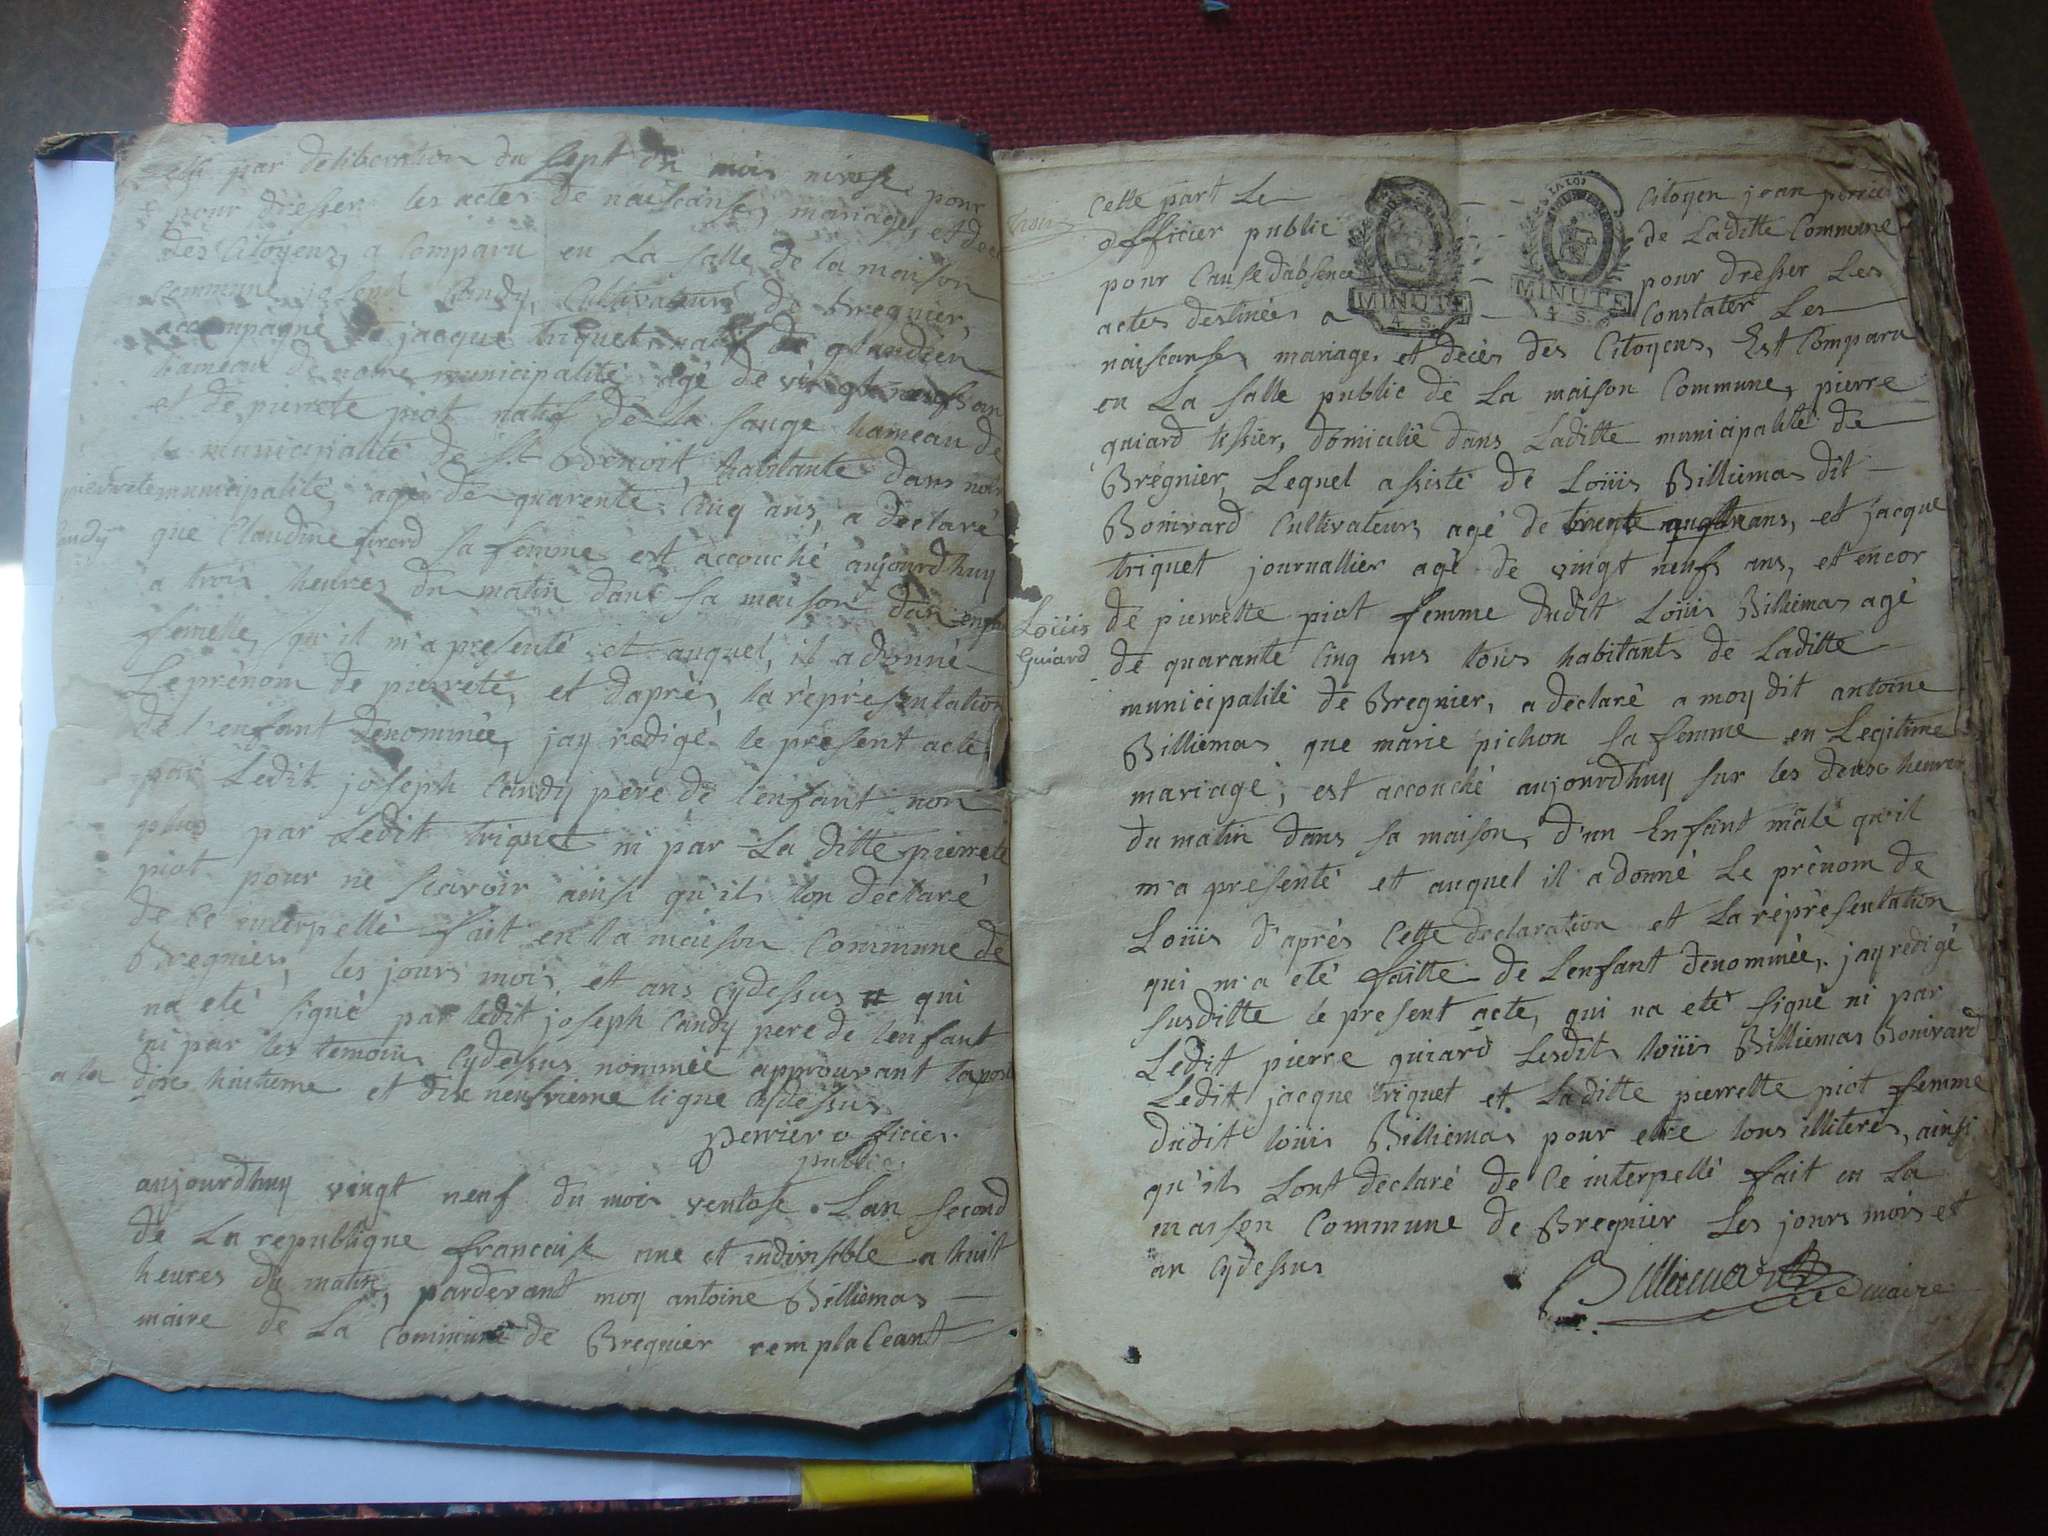 par deliberation du sept du mois nivose pour
pour dresser les actes de naiscanses, mariages, et deces
des Citoyens, a Comparu en La salle de la maison
commune joseph Candy, Cultivateur de Bregnier,
accompagné de jacque triquet natif de glandieu
hameau de notre municipalité agé de vingt neufs ans
et de pierrete piot natif de la sauge hameau de
la municipalité de St Benoit, habitante dans notre
municipalité, agé de quarente Cinq ans, a déclaré
pierrete
Candy
que Claudine girerd sa femme est accouché aujourdhuy
a trois heures du matin dans sa maison d'un enfant
femelle, qu'il m'a presenté et auquel, il a donné
Le prénom de pierrete, et daprès, la répresentation
de l'enfant denommée, jay redigé le present acte
par Ledit joseph Candy pere de l'enfant non
plus par Ledit triquet ni par La ditte pierrete
piot pour ne scavoir ainsi qu'ils lon déclaré
de ce interpellé fait en la maison Commune de
Bregnier, les jours mois et ans cydessus # qui
na eté signé par ledit joseph Candy pere de lenfant
ni par les temoins cydessus nommée approuvant
a la dix huitieme et dix neufvieme ligne cydessus
perrier officier
public
aujourdhuy vingt neuf du mois ventose Lan second
de La republique francaise une et indivisible a huit
heures du matin, pardevant moy antoine Billiemas
maire de La Commune de Bregnier remplaceant
Cette part Le Citoyen jean perrier
officier public de Laditte Commune
pour Cause dabsence pour dresser Les
actes destinées a Constater Les
MINUTE
4 S.
MINUTE
4 S.
naiscanses, mariages, et decès des Citoyens, Est Comparu
en La salle public de La maison Commune, pierre
guiard tissier, domicilié dans Laditte municipalité de
Bregnier, Lequel assisté de Loüis Billiemas dit
Bonivard Cultivateurs agé de trente ans, et jacque
triquet journallier agé de vingt neufs ans, et encor
de pierrette piot femme dudit Loüis Billiemas agé
Loüis
Guiard
de quarante Cinq ans tous habitants de Laditte
municipalité de Bregnier, a déclaré a moy dit antoine
Billiemas que marie pichon sa femme en Legitime
mariage, est accouché aujourdhuy sur les deux heures
du matin dans sa maison, d'un Enfant mâle qu'il
m'a presenté et auquel il a donné Le prénom de
Loüis d'après Cette declaration et La répresentation
qui m'a eté faitte de Lenfant denommée, jay redigé
susditte le present acte, qui na eté signé ni par
Ledit pierre guiard Lesdits loüis Billiemas Bonivard
Ledit jacque triquet et Laditte pierrette piot femme
dudit loüis Billiemas pour etre tous illiterés, ainsi
qu'ils Lont déclaré de Ce interpellé fait en La
maison Commune de Bregnier Les jours mois et
an Cydessus
Billiemas maire